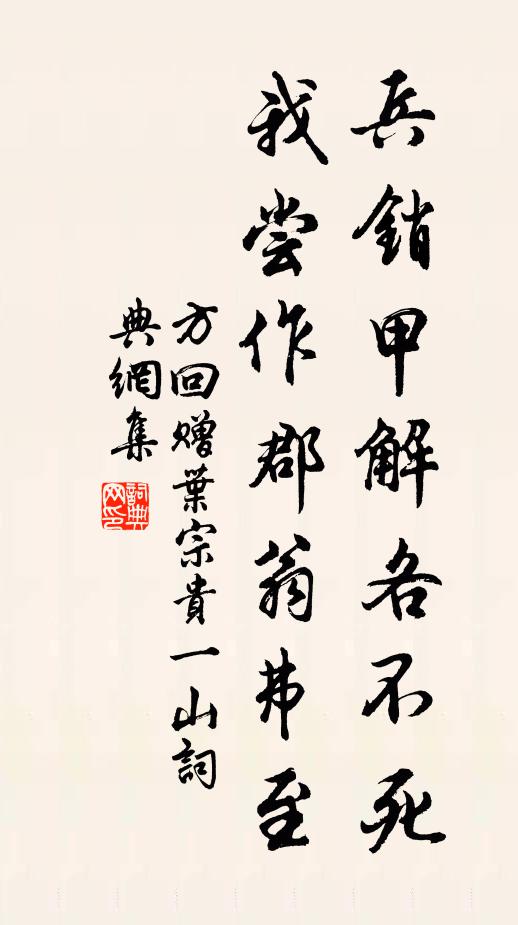 兵銷甲解各不死
我尝作郡翁弗至
方回赠葉宗貴一山詞
典網集
詞典网印